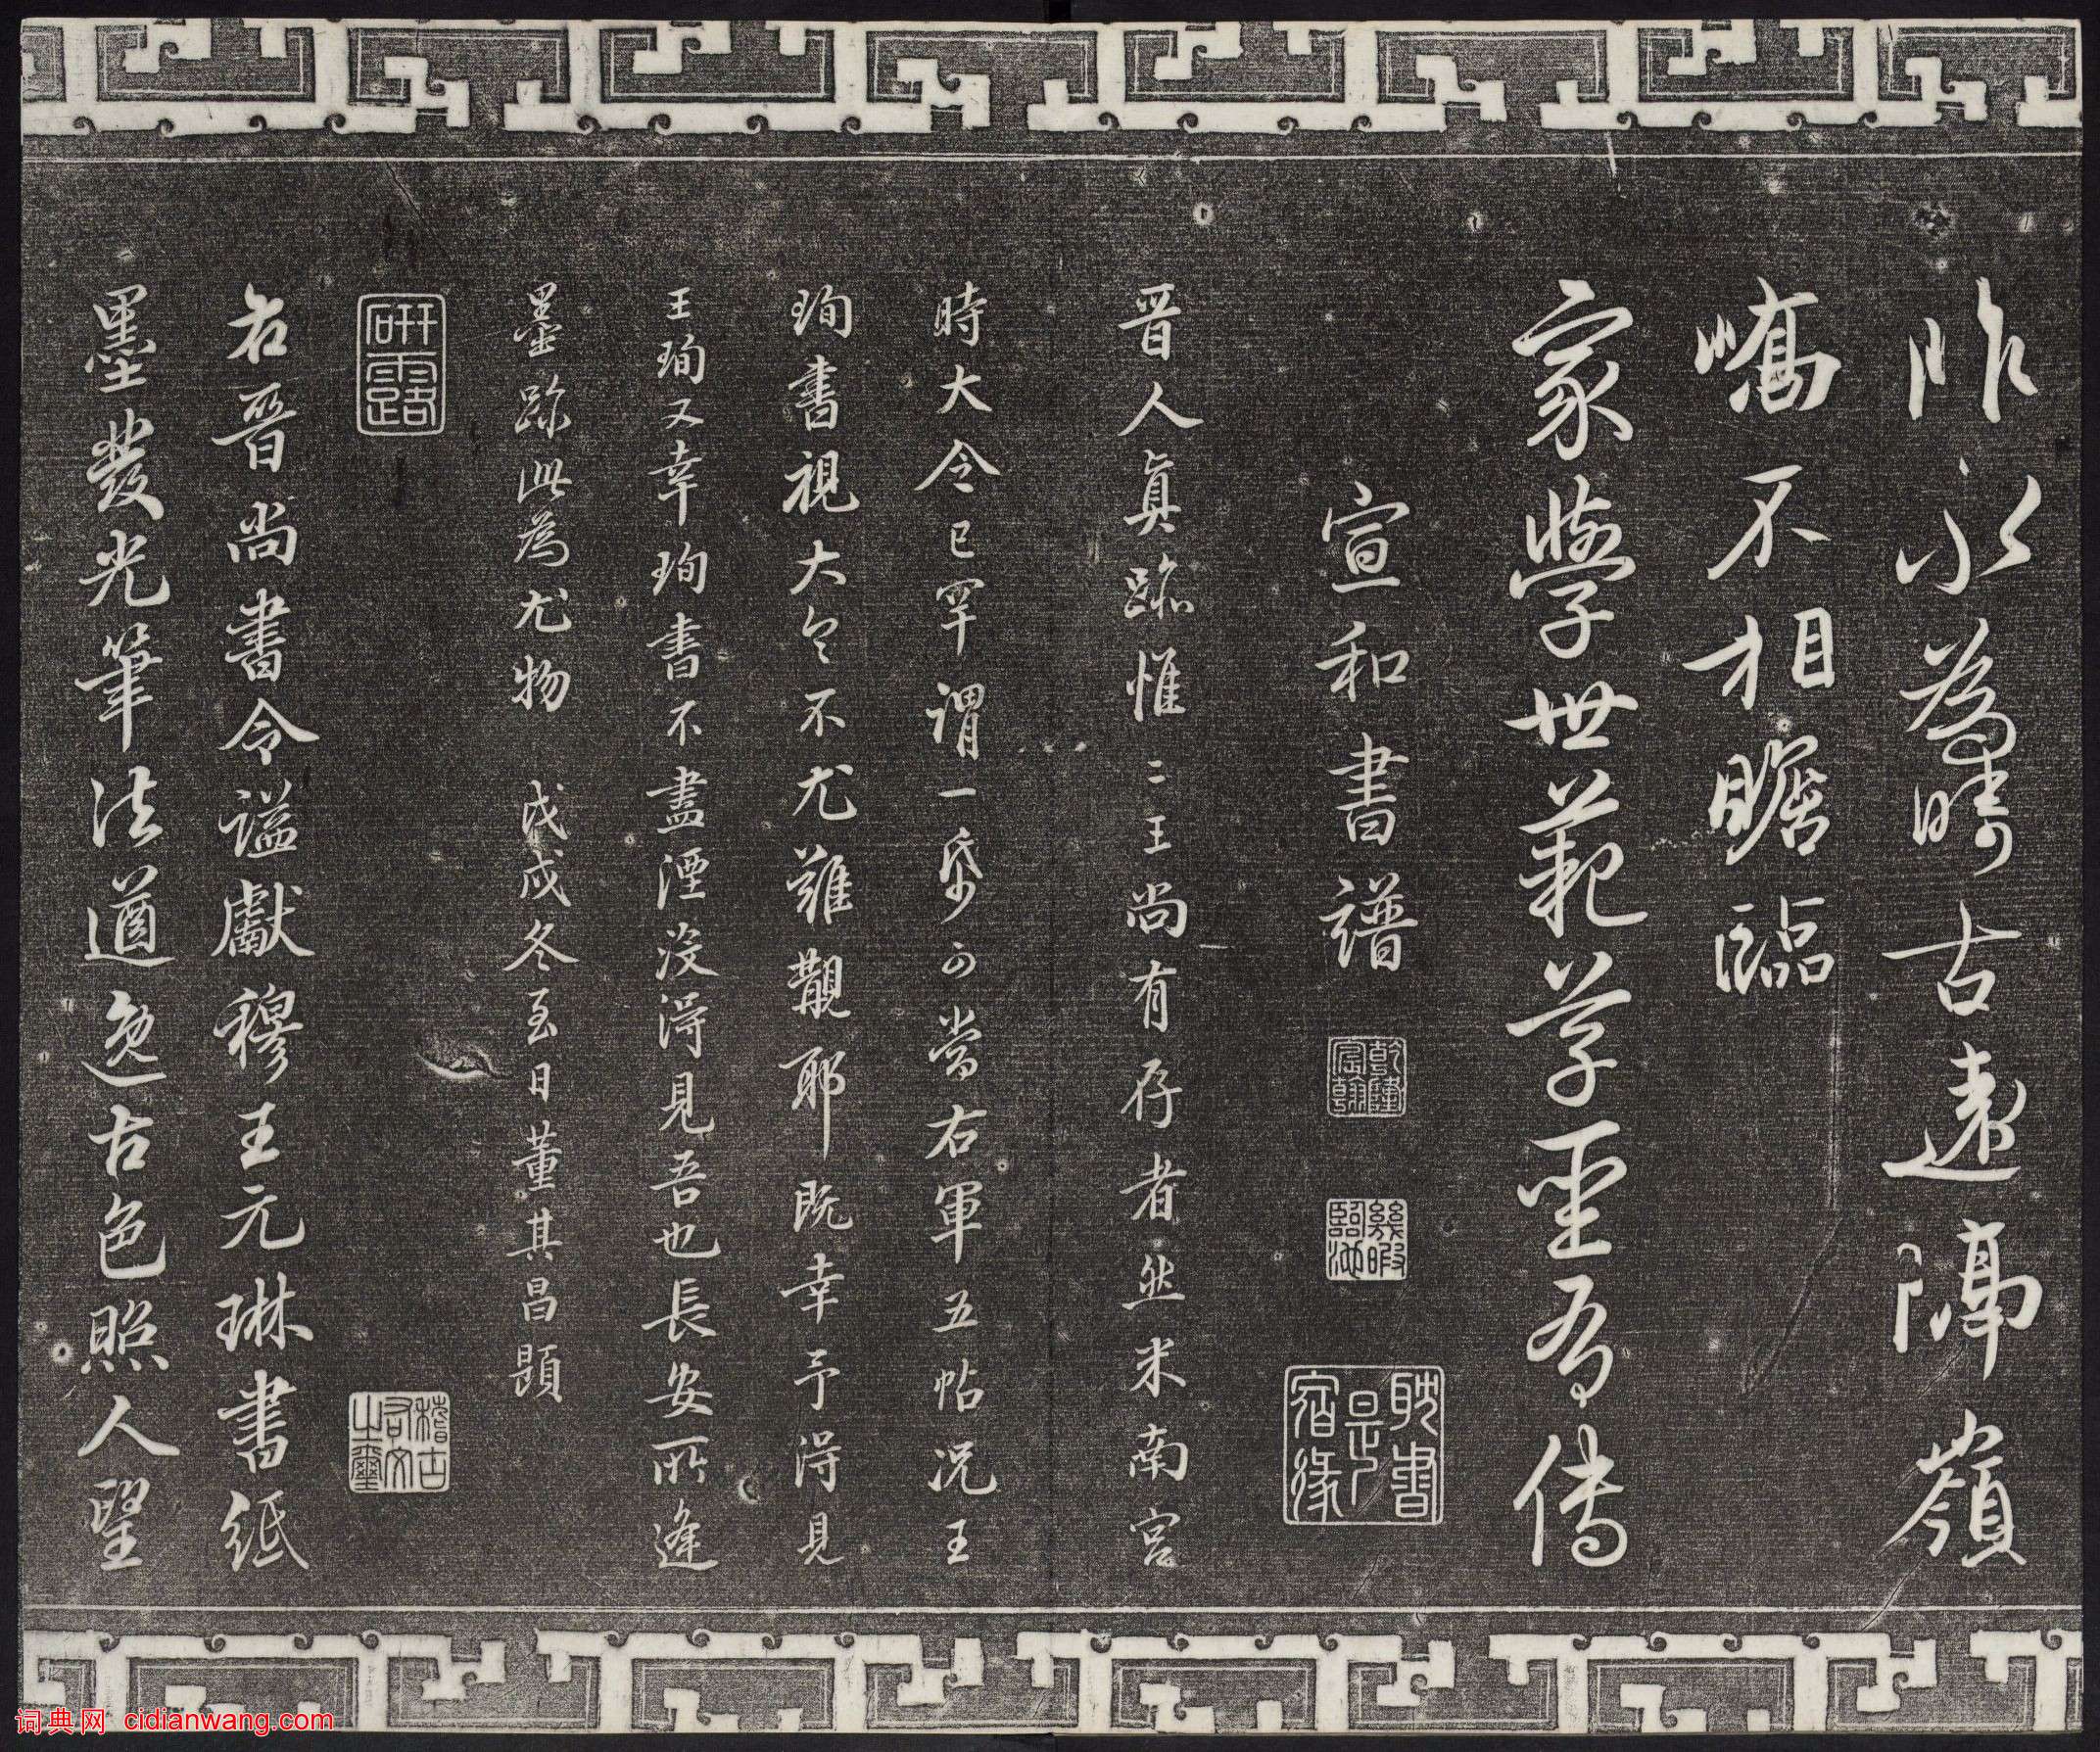 昨永為疇古遠隔嶺
嶠不相瞻臨
家學世範草聖有傳
宣和書譜
乾隆宸翰
幾暇臨池
晋人真跡惟二王尚有存者然米南宮
時大令已罕謂一紙可當右軍五帖况王
珣書視大令不尤難覯耶既幸予得見
王珣又幸珣書不盡湮没得見吾也長安所逢
墨跡此為尤物 戊戌冬至日董其昌題
研露
稽古右文之璽
右晋尚書令謚獻穆王元琳書紙
墨發光筆法遒逸古色照人望
词典网 cidianwang.com